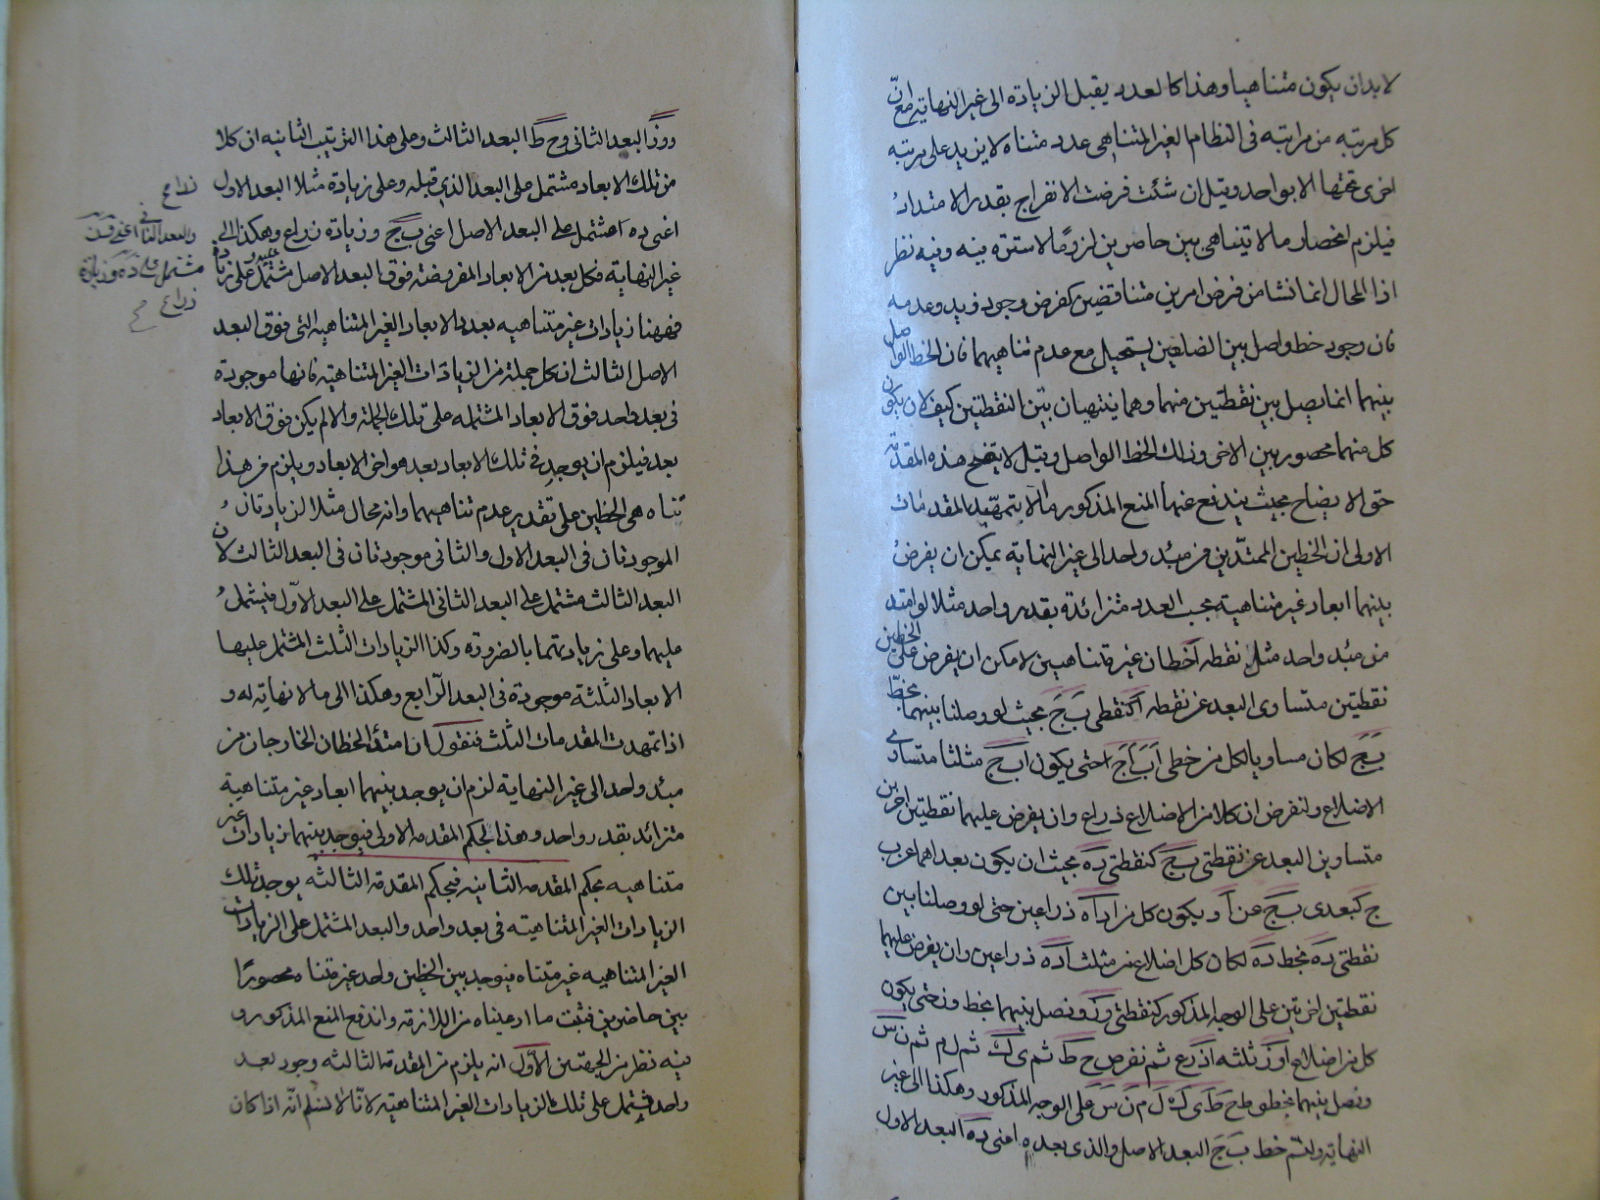 لابد ان يكون متناهيا وهذا كالعدد يقبل الزيادة الى غير النهاية مع ان
كل مرتبه من مراتبه فى النظام الغير المتناهى عدد متناه لا يزيد على مرتبه
اخرى تحتها الا بواحد وقيل ان شئت فرضت الانفراج بقدر الامتداد
فيلزم انحصار ما لا يتناهى بين حاصرين لزوما لا سترة فيه وفيه نظر
اذ المحال انما نشا من فرض امرين متناقضين كفرض وجود زيد وعدمه
فان وجود خط واصل بين الضلعين يستحيل مع عدم تناهيهما فان الخط الواصل
بينهما انما يصل بين نقطتين منهما وهما ينتهيان بتين النقطتين كيف لا ان يكون
كل منهما محصور بين الاخرى وذلك الخط الواصل وقيل لا يتضح هذه المقدمة
حق الايضاح بحيث يندفع عنها المنع المذكور الا بتمهيد المقدمات
الاولى ان الخطين الممتدين من مبدء واحد الى غير النهاية يمكن ان يفرض
بينهما ابعاد غير متناهية بحسب العدد متزائدة بقدر واحد مثلا لو امتد
من مبدء واحد مثل نقطه آ خطان غير متناهيين لامكن ان يفرض على الخطين
نقطيتن متساوى البعد عن نقطه آ كنقطى ب ج بحيث لو وصلنا بينهما بخط
ب ج لكان مساويا لكل من خطى اب اج حتى يكون اب ج مثلثا متساوى
الاضلاع ولنفرض ان كلا من الاضلاع ذراع وان يفرض عليهما نقطيتن اخرين
متساوين البعد عن نقطتى ب ج كنقطتى ده بحيث ان يكون بعداهما عن ب
ج كبعدى ب ج عن آ و يكون كل من اد اه ذراعين حتى لو وصلنا بين
نقطتى ده بخط ده لكان كل اضلاع مثلث اده ذراعين وان يفرض عليهما
نقطيتن اخرتين على الوجه المذكور كنقطتى وز ونصل بينهما بخط وز حتى يكون
كل من اضلاع اوز ثلثه اذرع ثم نفرض ح ط ثم ى ك ثم ل م ثم ن س
ونصل بينهما بخطوط ح ط ى ك ل م ن س على الوجه المذكور وهكذا الى غير
النهاية ولنسم خط ب ج البعد الاصل والذى بعده اعنى ده البعد الاول
ووز البعد الثانى وح ط البعد الثالث وعلى هذا الترتيب الثانيه ان كلا
من تلك الابعاد مشتمل على البعد الذى قبله وعلى زيادة مثلا البعد الاول
اعنى ده مشتمل على البعد الاصل اعنى ب ج وزيادة ذراع وهكذا الى
غير النهاية فكل بعد من الابعاد المفروضة فوق البعد الاصل مشتمل على زيادة
فههنا زيادات غير متناهيه بعدد الابعاد الغير المتناهيه التى فوق البعد
الاصل الثالث ان كل جملة من الزيادات الغير المتناهيه فانها موجودة
فى بعد واحد فوق الابعاد المشتمله على تلك الجملة والا لم يكن فوق الابعاد
بعد فيلزم ان يوجد فى تلك الابعاد بعد هو اخر الابعاد ويلزم من هذا
تناهى الخطين على تقدير عدم تناهيهما وانه محال مثلا الزيادتان
الموجودتان فى البعد الاول والثانى موجودتان فى البعد الثالث لان
البعد الثالث مشتمل على البعد الثانى المشتمل على البعد الاول فيشتمل
عليهما وعلى زيادتهما بالضرورة وكذا الزيادات الثلث المشتمل عليها
الابعاد الثلثة موجودة فى البعد الرابع وهكذا الى ما لا نهاية له و
اذا تمهدت المقدمات الثلث فنقول ان امتد الخطان الخارجان من
مبدء واحد الى غير النهاية لزم ان يوجد بينهما ابعاد غير متناهية
متزائد بقدر واحد وهذا بحكم المقدمه الاولى فيوجد بينهما زيادات غير
متناهيه بحكم المقدمه الثانيه فبحكم المقدمة الثالثه يوجد تلك
الزيادات الغير المتناهيته فى بعد واحد والبعد المشتمل على الزيادات
الغير المتناهيه غير متناه فيوجد بين الخطين واحد غير متناه محصورا
بين حاصرين فثبت ما ادعيناه من الملازمة واندفع المنع المذكور و
فيه نظر من الجهتين الاول انه يلزم من المقدمة الثالثه وجود بعد
واحد مشتمل على تلك الزيادات الغير المتناهيه لانا لا نسلم انه اذا كان
ذراع
والبعد الثانى اعنى وز
مشتمل على ده وزيادة
ذراع